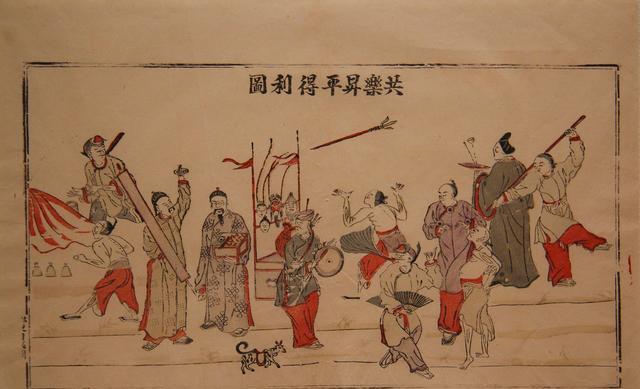 共樂昇平得利圖